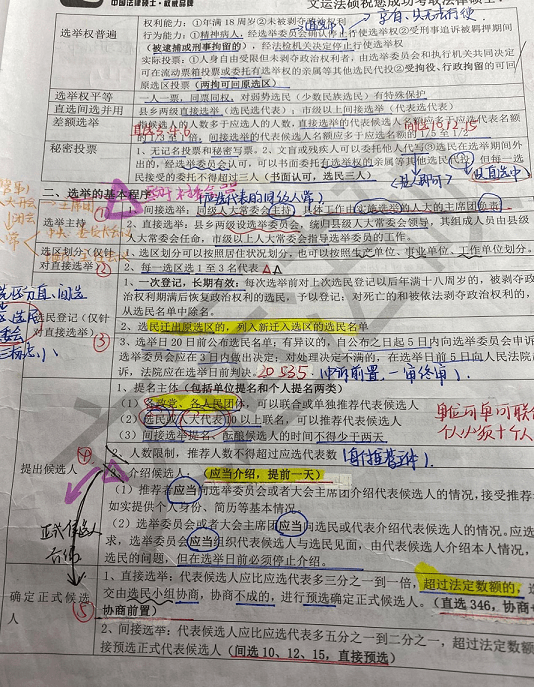 中国法律硕士·权威品牌
文运法硕祝您成功考取法律硕士
权利能力：①年满18周岁②未被剥夺政治权利
选举权普遍
行为能力：①精神病人：经选举委员会确认停止行使选举权②受刑事追诉被羁押期间
（被逮捕或刑事拘留的），经法检机关决定停止行使选举权
实际投票：①人身自由受限但未剥夺政治权利者，由选举委员会和执行机关共同决定
可在流动票箱投票或委托有选举权的亲属等其他选民代投②受拘役、行政拘留的可回
原选区投票（两拘可回原选区）
选举权平等
一人一票，同票同权，对弱势选民（少数民族选民）有特殊保护
直选间选并用
县乡两级直接选举（选民选代表）；市级以上间接选举（代表选代表）
差额选举
指候选人的人数多于应选人的人数，直接选举的代表候选人名额应多于应选代表名额
的1/3至1倍，间接选举的代表候选人名额应多于应选名额的1/5至1/2
秘密投票
1、无记名投票和秘密写票。2、文盲或残疾人可以委托他人代写③选民在选举期间外
出的，经选举委员会认可，可以书面委托有选举权的亲属等其他选民代投，但每一选
民接受的委托不得超过三人（书面认可，选民三人）
二、选举的基本程序
选举主持
1、间接选举：同级人大常委会主持，具体工作由实施选举的人大的主席团负责。
2、直接选举：县乡两级设选举委员会，统归县级人大常委会领导，其组成人员由县级
人大常委会任命，市级以上人大常委会指导选举委员的工作。
选区划分（仅针
对直接选举）
1、选区划分可以按照居住状况划分，也可以按照生产单位、事业单位、工作单位划分。
2、每一选区选1至3名代表
选民登记（仅针
对直接选举）
1、一次登记，长期有效：每次选举前对上次选民登记以后年满十八周岁的，被剥夺政
治权利期满后恢复政治权利的选民，予以登记；对死亡的和被依法剥夺政治权利的，
从选民名单中除名。
2、选民迁出原选区的，列入新迁入选区的选民名单
3、选举日20日前公布选民名单；有异议的，自公布之日起5日内向选举委员会申诉
选举委员会应在3日内做出决定；对处理决定不满的，在选举日前5日向人民法院起
诉，法院应在选举日前判决。20 5 3 5
提出候选人
1、提名主体（包括单位提名和个人提名两类）
（1）各政党、各人民团体，可以联合或单独推荐代表候选人
（2）选民或人大代表10以上联名，可以推荐代表候选人
（3）间接选举提名、酝酿候选人的时间不得少于两天。
2、人数限制，推荐人数不得超过应选代表数
介绍候选人：（应当介绍，提前一天）
（1）推荐者应当向选举委员会或者大会主席团介绍代表候选人的情况，接受推荐
如实提供个人身份、简历等基本情况
（2）选举委员会或者大会主席团应当向选民或代表介绍代表候选人的情况。应选
求，选举委员会应当组织代表候选人与选民见面，由代表候选人介绍本人情况，
选民的问题，但在选举日前必须停止介绍。
确定正式候选
人
1、直接选举：代表候选人应比应选代表多三分之一到一倍，超过法定数额的，
交由选民小组协商，协商不成的，进行预选确定正式候选人。（直选346，协商
协商前置）
2、间接选举：代表候选人应比应选代表多五分之一到二分之一，超过法定数额
接预选正式代表候选人（间选10、12、15，直接预选）